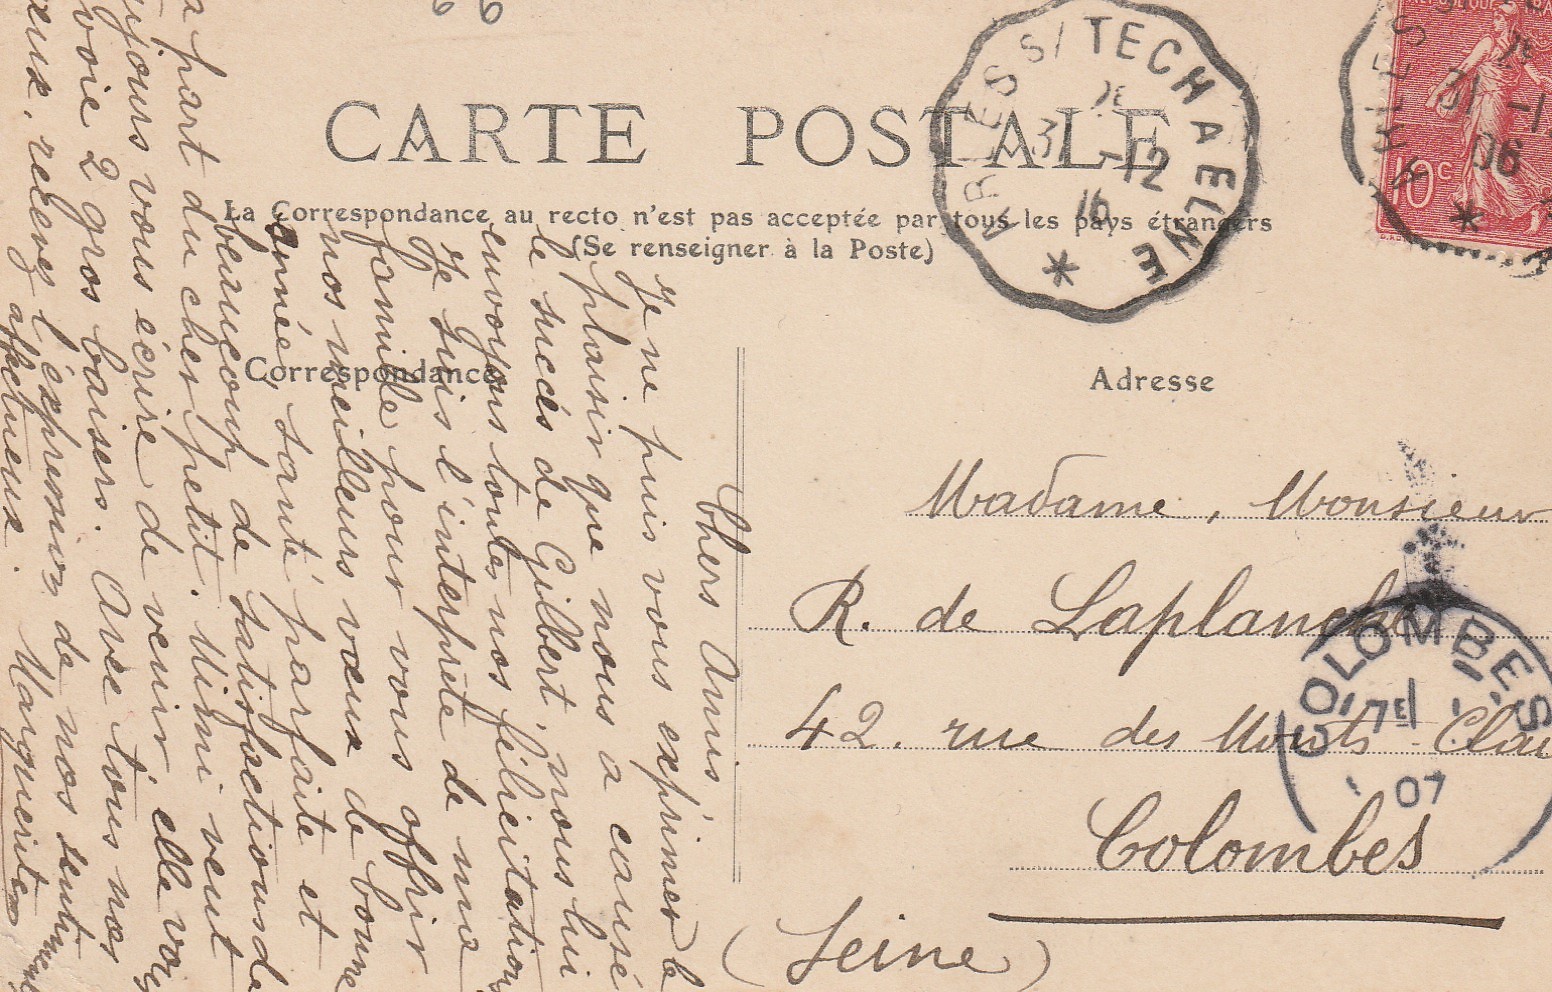 CARTE POSTALE
La Correspondance au recto n'est pas acceptée par tous les pays étrangers
(Se renseigner à la Poste)
Correspondance
Adresse
ARLES S/ TECH A ELNE
31 -12
10c
ARLES
31 -1
06
Chers Amis,
Je ne puis vous exprimer le
plaisir que nous a causé
le succès de Gilbert, nous lui
envoyons toutes nos félicitations
Je suis l'interprète de ma
famille pour vous offrir
nos meilleurs vœux de bonne
année, santé parfaite et
beaucoup de satisfactions de
la part du cher petit. Mimi veut
toujours vous écrire de venir, elle vous
envoie 2 gros baisers. Avec tous nos
vœux, recevez l'expression de nos sentiments
affectueux. Marguerite
Madame, Monsieur
R. de Laplanche
42. rue des Monts-Clai
Colombes
(Seine)
COLOMBES
7E
07